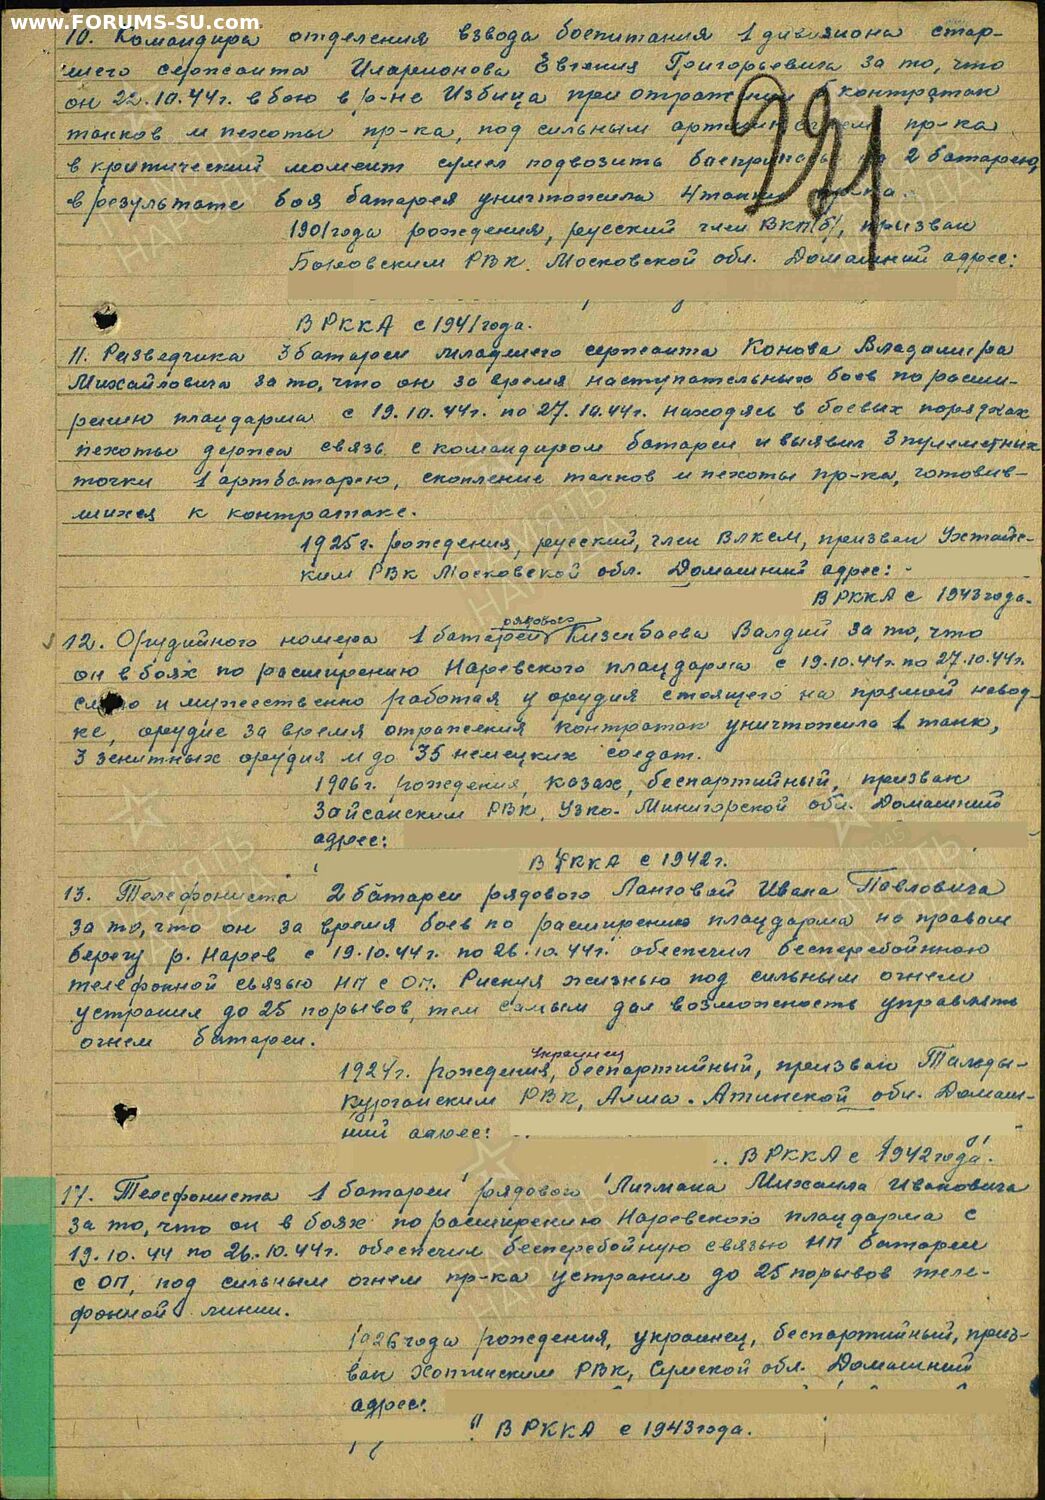 www.FORUMS-SU.com
10. Командира отделения взвода боепитания 1 дивизиона стар-
шего сержанта Иларионова Евгения Григорьевича за то, что
он 22.10.44г. в бою в р-не Избица при отражении контратак
танков и пехоты пр-ка, под сильным огнем пр-ка
в критический момент сумел подвозить боеприпасы на 2 батарею,
в результате боя батарея уничтожила 4 танка
291
1901 года рождения, русский член ВКП(б), призван
РВК Московской обл. Домашний адрес:
В РККА с 1941 года.
11. Разведчика 3 батареи младшего сержанта Конова Владимира
Михайловича за то, что он за время наступательных боев по расши-
рению плацдарма с 19.10.44г. по 27.10.44г. находясь в боевых порядках
пехоты держа связь с командиром батареи и выявил 3 пулеметных
точки 1 артбатарею, скопление танков и пехоты пр-ка, готовив-
шихся к контратаке.
1925 г. рождения, русский, член ВЛКСМ, призван Ухтомс-
ким РВК Московской обл. Домашний адрес:
В РККА с 1943 года.
рядового
12. Орудийного номера 1 батареи Кизенбаева Валдий за то, что
он в боях по расширению Наревского плацдарма с 19.10.44г. по 27.10.44г.
смело и мужественно работая у орудия стоящего на прямой навод-
ке, орудие за время отражения контратак уничтожила 1 танк,
3 зенитных орудия и до 35 немецких солдат.
1906 г. рождения, казах, беспартийный, призван
Зайсанским РВК, обл. Домашний
адрес:
В РККА с 1942 г.
13. Телефониста 2 батареи рядового Лангового Ивана Павловича
за то, что он за время боев по расширению плацдарма на правом
берегу р. Нарев с 19.10.44г. по 26.10.44г. обеспечил бесперебойною
телефонной связью НП с ОП. Рискуя жизнью под сильным огнем
устранил до 25 порывов, тем самым дал возможность управлять
огнем батареи.
украинец
1924 г. рождения, беспартийный, призван Талды-
Курганским РВК, Алма-Атинской обл. Домаш-
ний адрес:
В РККА с 1942 года.
17. Телефониста 1 батареи рядового Лигмана Михаила Ивановича
за то, что он в боях по расширению Наревского плацдарма с
19.10.44 по 26.10.44г. обеспечил бесперебойную связью НП батареи
с ОП, под сильным огнем пр-ка устранил до 25 порывов теле-
фонной линии.
1926 года рождения, украинец, беспартийный, приз-
ван Хотинским РВК, Сумской обл. Домашний
адрес:
В РККА с 1943 года.